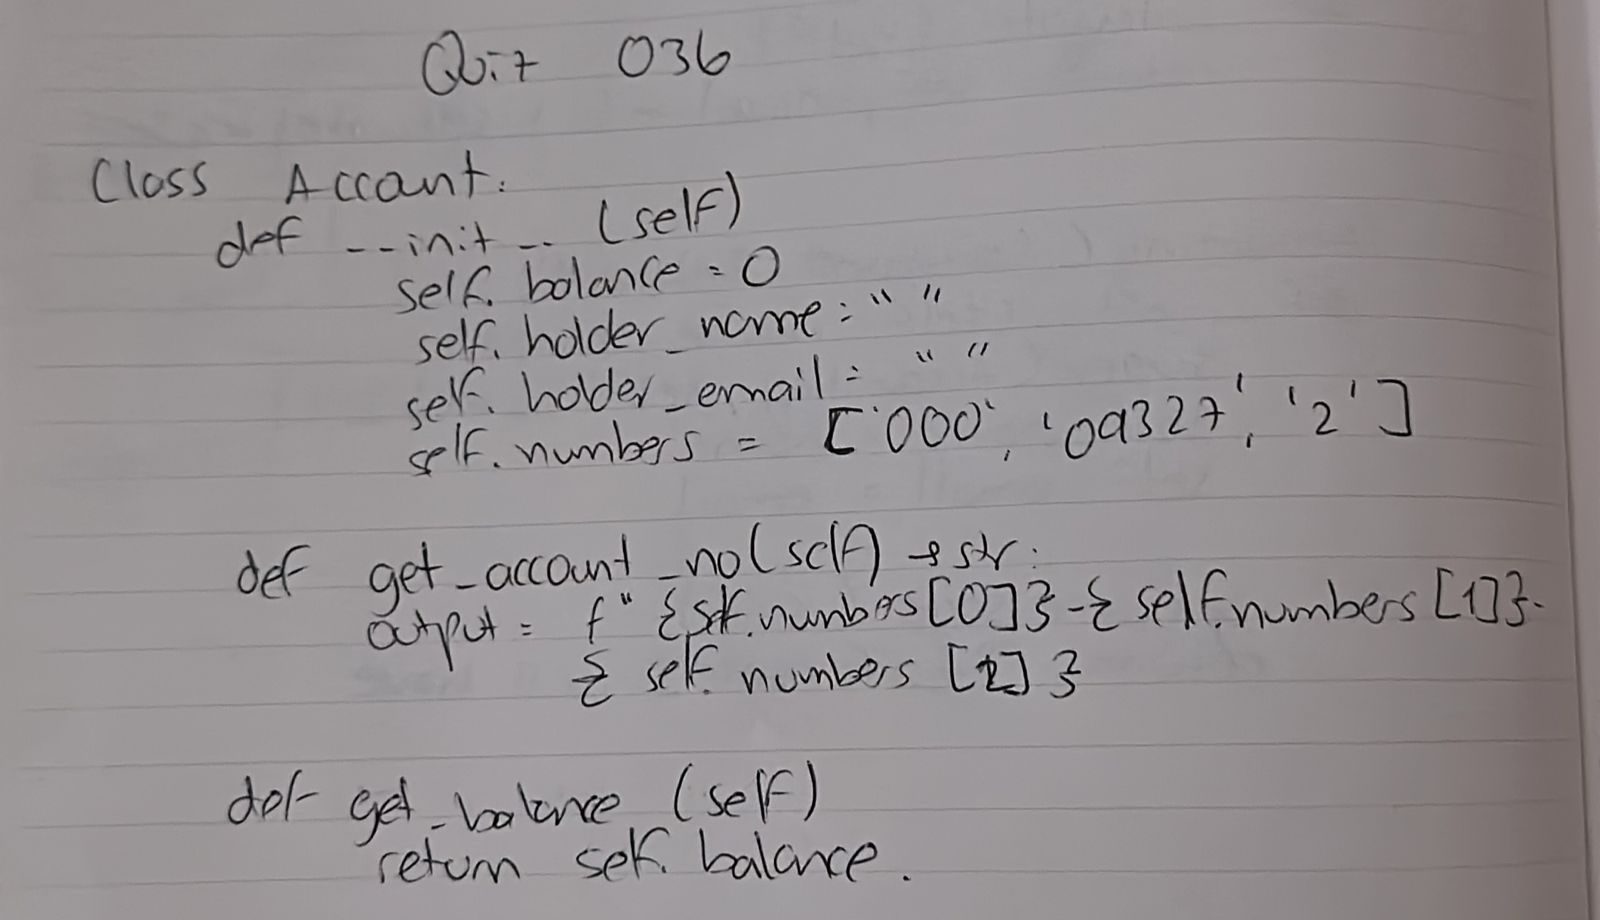 Quiz 036
Class Account:
def __init__ (self)
self.balance = 0
self.holder_name = " "
self.holder_email = " "
self.numbers = ['000', '09327', '2']
def get_account_no(self) → str:
output = f" {self.numbers[0]}-{self.numbers[1]}-
{self.numbers[2]}
def get_balance (self)
return self.balance.